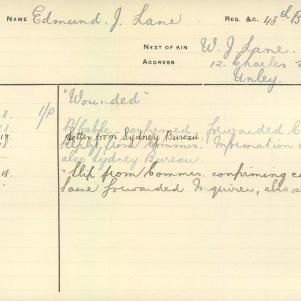 NAME Edmund. J. Lane REG. &C. 48th B
NEXT OF KIN W. J. Lane.
ADDRESS 12. Charles
Unley.
"Wounded"
8. I/P confirmed. forwarded
8. Letter from Sydney Bureau.
18. Reply from Commrs. Information
also Sydney Bureau.
18. "Slip from Commrs. confirming
same forwarded Inquirer, also